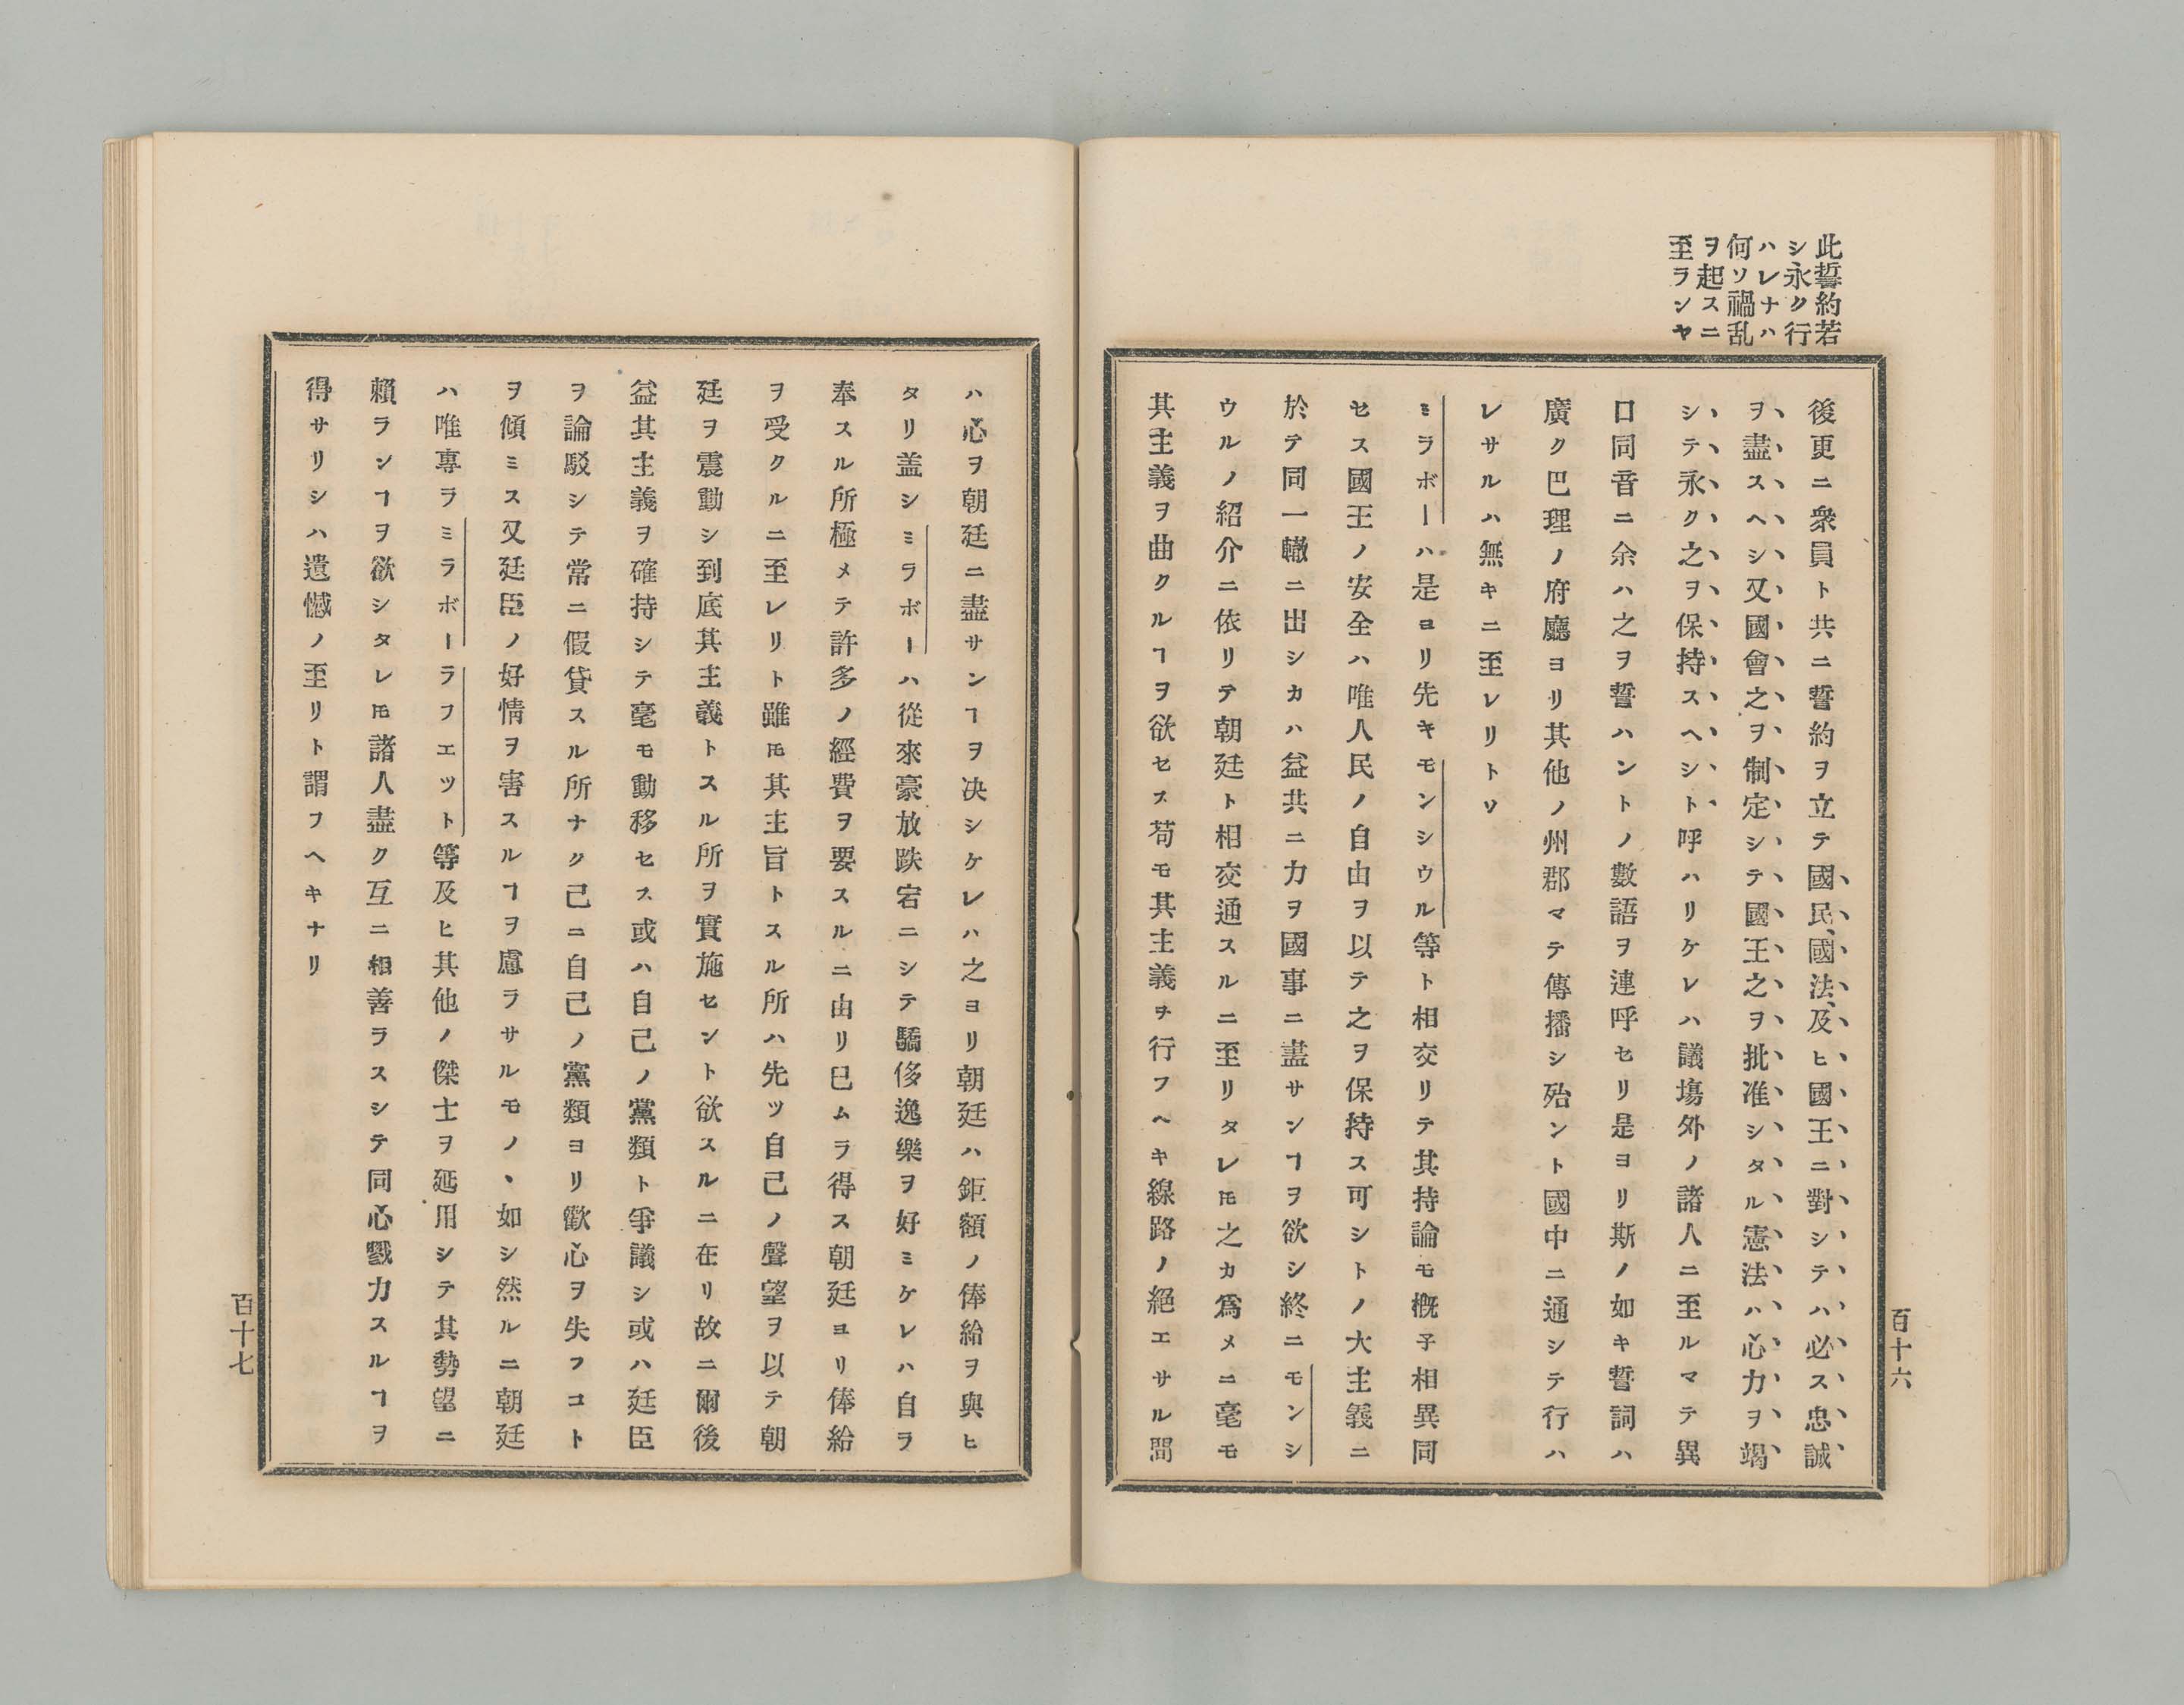 此誓約若
シ永ク行
ハレナハ
何ソ禍乱
ヲ起スニ
至ランヤ
後更ニ衆員ト共ニ誓約ヲ立テ國民、國法、及ヒ國王ニ對シテハ必ス忠誠
ヲ盡スヘシ又國會之ヲ制定シテ國王之ヲ批准シタル憲法ハ心力ヲ竭
シテ永ク之ヲ保持スヘシト呼ハリケレハ議塲外ノ諸人ニ至ルマテ異
口同音ニ余ハ之ヲ誓ハントノ數語ヲ連呼セリ是ヨリ斯ノ如キ誓詞ハ
廣ク巴理ノ府廳ヨリ其他ノ州郡マテ傳播シ殆ント國中ニ通シテ行ハ
レサルハ無キニ至レリトソ
ミラボーハ是ヨリ先キモンシウル等ト相交リテ其持論モ概子相異同
セス國王ノ安全ハ唯人民ノ自由ヲ以テ之ヲ保持ス可シトノ大主義ニ
於テ同一轍ニ出シカハ益共ニ力ヲ國事ニ盡サンヿヲ欲シ終ニモンシ
ウルノ紹介ニ依リテ朝廷ト相交通スルニ至リタレ𪜈之カ爲メニ毫モ
其主義ヲ曲クルヿヲ欲セス苟モ其主義ヲ行フヘキ線路ノ絕エサル間
百十六
ハ心ヲ朝廷ニ盡サンヿヲ决シケレハ之ヨリ朝廷ハ鉅額ノ俸給ヲ與ヒ
タリ盖シミラボーハ從來豪放跌宕ニシテ驕侈逸樂ヲ好ミケレハ自ラ
奉スル所極メテ許多ノ經費ヲ要スルニ由リ已ムヲ得ス朝廷ヨリ俸給
ヲ受クルニ至レリト雖𪜈其主旨トスル所ハ先ツ自己ノ聲望ヲ以テ朝
廷ヲ震動シ到底其主義トスル所ヲ實施セント欲スルニ在リ故ニ爾後
益其主義ヲ確持シテ毫モ動移セス或ハ自己ノ黨類ト爭議シ或ハ廷臣
ヲ論駁シテ常ニ假貸スル所ナク己ニ自己ノ黨類ヨリ歡心ヲ失フコト
ヲ傾ミス又廷臣ノ好情ヲ害スルヿヲ慮ラサルモノヽ如シ然ルニ朝廷
ハ唯專ラミラボーラフエツト等及ヒ其他ノ傑士ヲ延用シテ其勢望ニ
賴ランヿヲ欲シタレ𪜈諸人盡ク互ニ相善ラスシテ同心戮力スルヿヲ
得サリシハ遺憾ノ至リト謂フヘキナリ
百十七